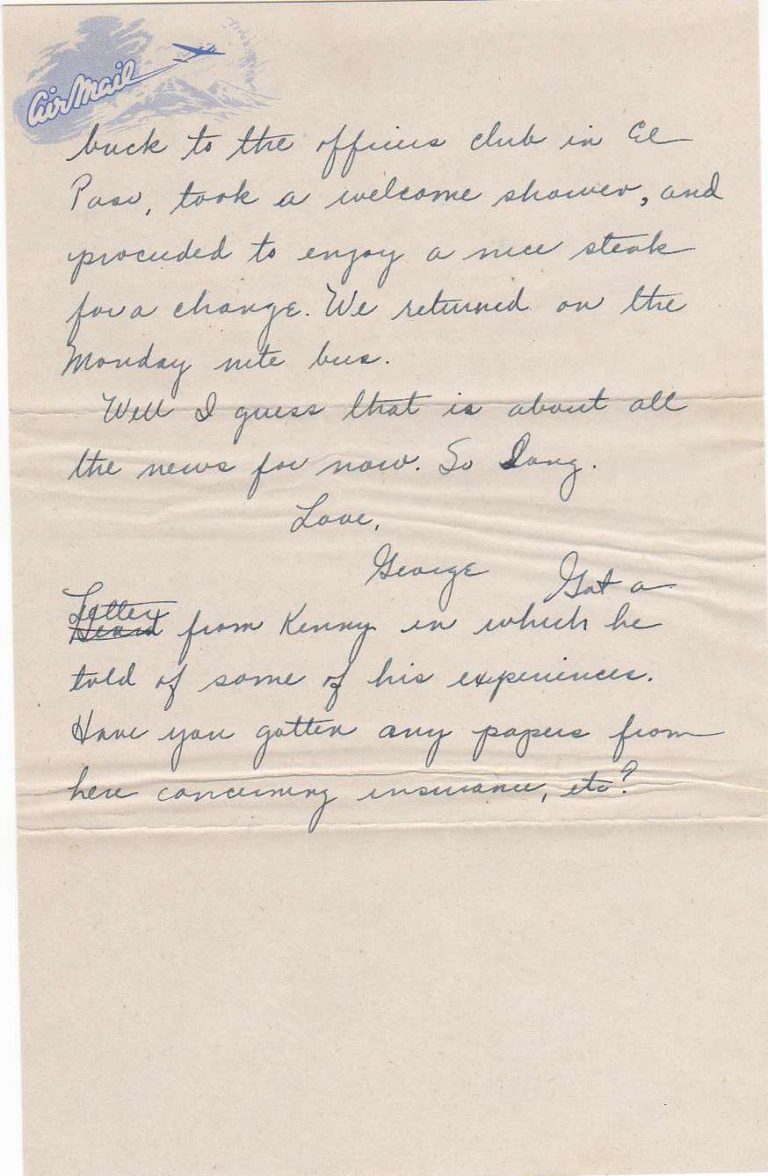 Air Mail
back to the officers club in El
Paso, took a welcome shower, and
proceeded to enjoy a nice steak
for a change. We returned on the
Monday nite bus.
Well I guess that is about all
the news for now. So Long.
Love,
George Got a
Letter
Heard from Kenny in which he
told of some of his experiences.
Have you gotten any papers from
here concerning insurance, etc?